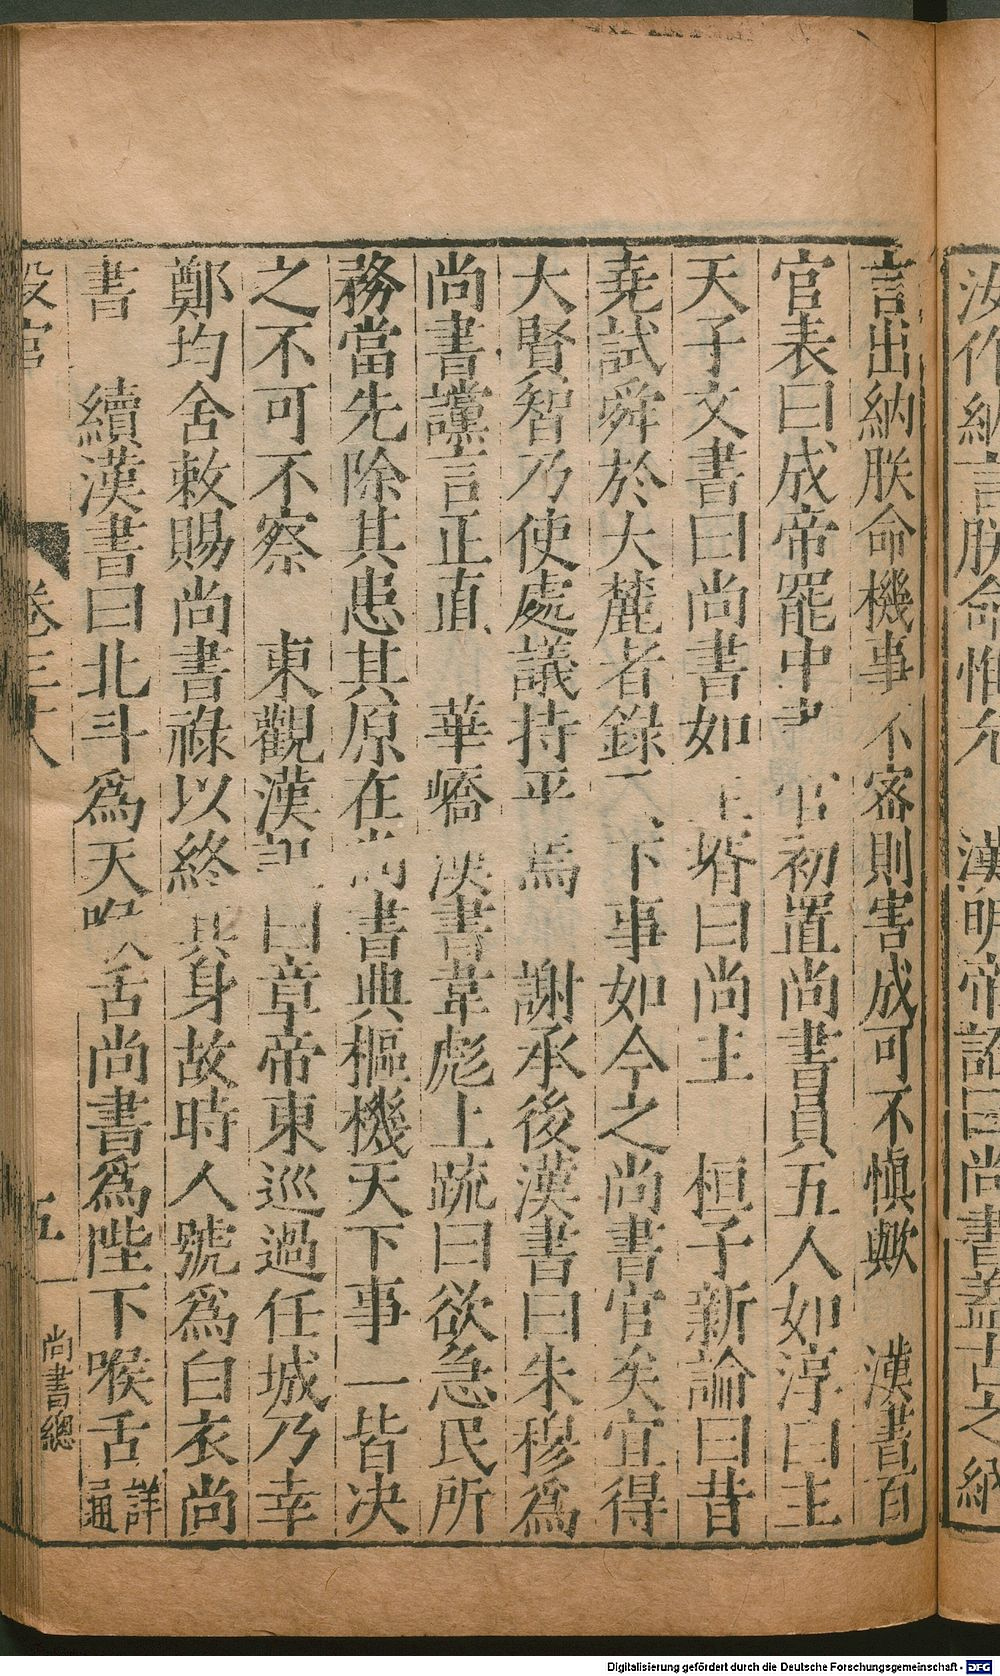 汝作納言朕命惟允　漢明帝詔曰尚書蓋古之納
言出納朕命機事不審則害成可不愼歟　漢書百
官表曰成帝罷中官初置尚書員五人如淳曰主
天子文書曰尚書如主壻曰尚主　桓子新論曰昔
堯試舜於大麓者錄天下事如今之尚書官矣宜得
大賢智乃使處議持平焉　謝承後漢書曰朱穆爲
尚書讜言正直　華嶠漢書韋彪上疏曰欲急民所
務當先除其患其原在尚書典樞機天下事一皆決
之不可不察　東觀漢記曰章帝東巡過任城乃幸
鄭均舍敕賜尚書祿以終其身故時人號爲白衣尚
書　續漢書曰北斗爲天喉舌尚書爲陛下喉舌詳通
設官　卷三十八　五　尚書總
Digitalisierung gefördert durch die Deutsche Forschungsgemeinschaft - DFG